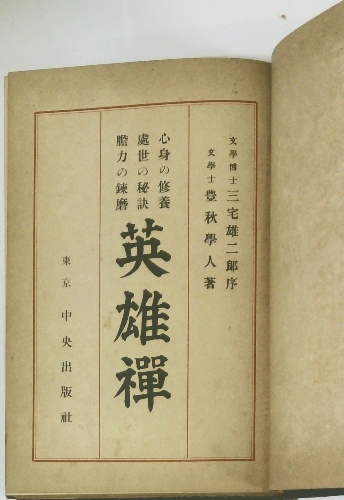 文學博士 三宅雄二郎序
文學士 豊秋學人著
心身の修養
處世の秘訣
膽力の錬磨
英雄禪
東京 中央出版社